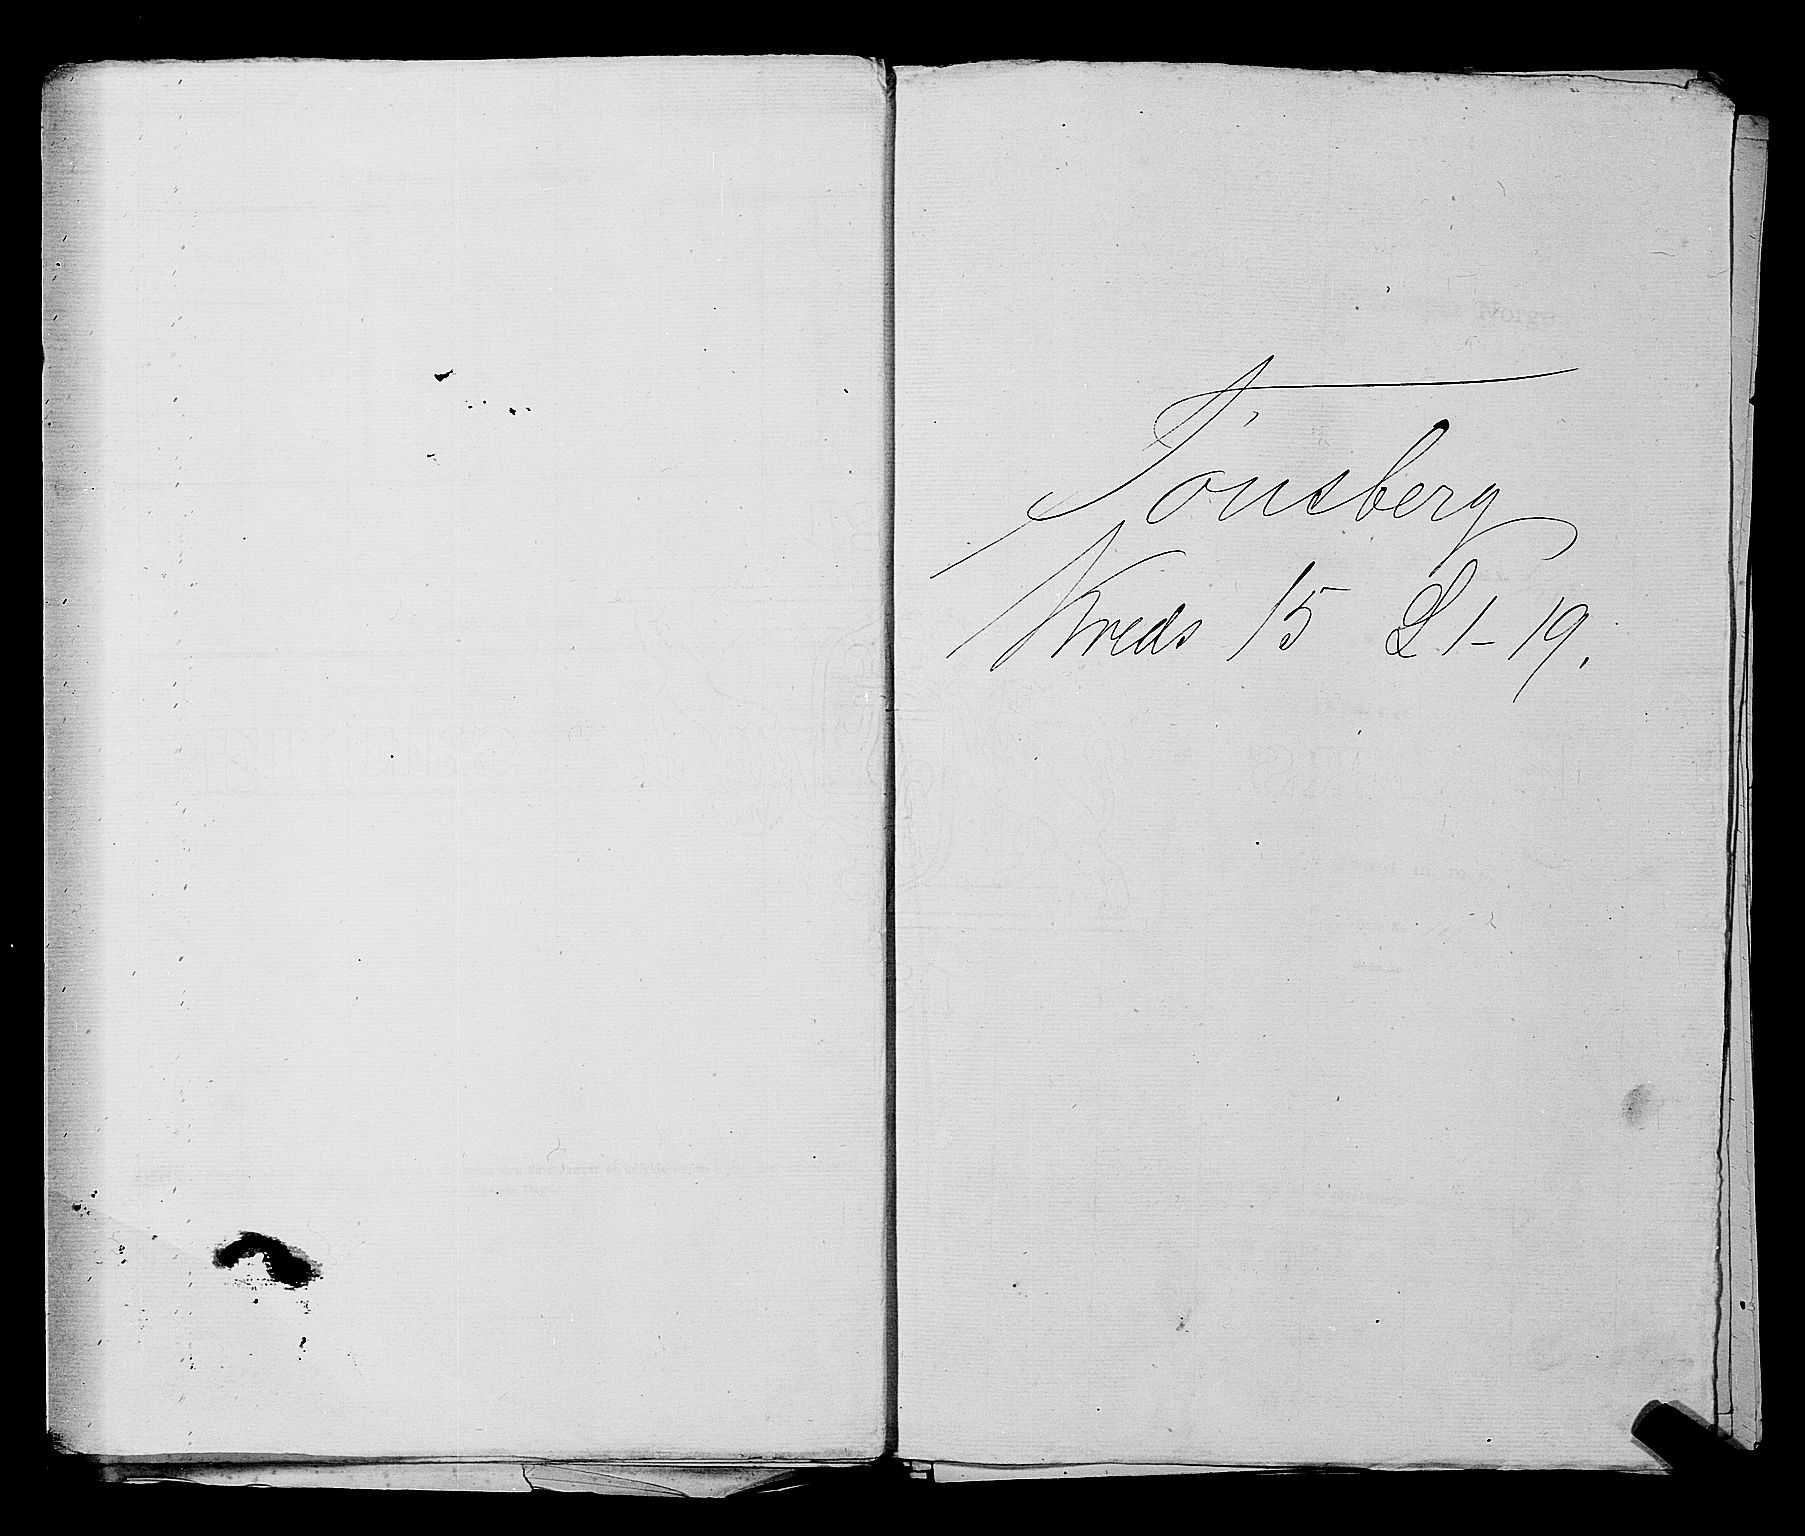 Tönsberg
Kreds 15 L 1-19.